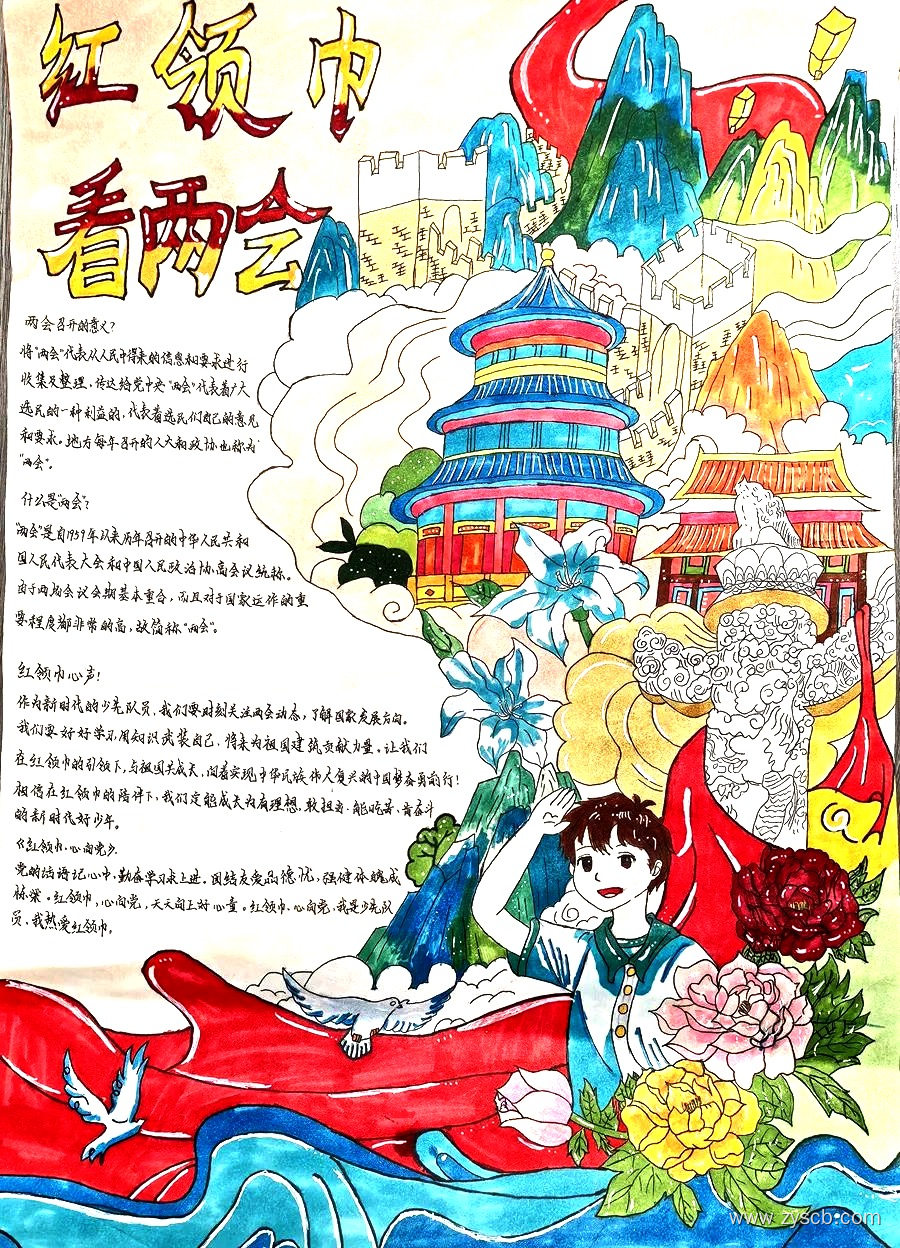 红领巾
看两会
两会召开的意义？
将"两会"代表从人民中得来的信息和要求进行
收集及整理，传达给党中央"两会"代表着广大
选民的一种利益的，代表着选民们自己的意见
和要求。地方每年召开的人大和政协也称为
"两会"。
什么是"两会"？
"两会"是自1959年以来历年召开的中华人民共和
国人民代表大会和中国人民政治协商会议统称。
由于两场会议会期基本重合，而且对于国家运作的重
要程度都非常的高，故简称"两会"。
红领巾心声！
作为新时代的少先队员，我们要时刻关注两会动态，了解国家发展方向。
我们要好好学习用知识武装自己，将来为祖国建筑贡献力量。让我们
在红领巾的引领下，与祖国共成长，向着实现中华民族伟大复兴的中国梦奋勇前行！
相信在红领巾的陪伴下，我们定能成长为有理想、敢担当、能吃苦、肯奋斗
的新时代好少年。
《红领巾，心向党》
党的话语记心中，勤奋学习求上进。团结友爱品德优，强健体魄成
栋梁。红领巾，心向党，天天向上好儿童。红领巾，心向党，我是少先队
员，我热爱红领巾。
www.zyscb.com